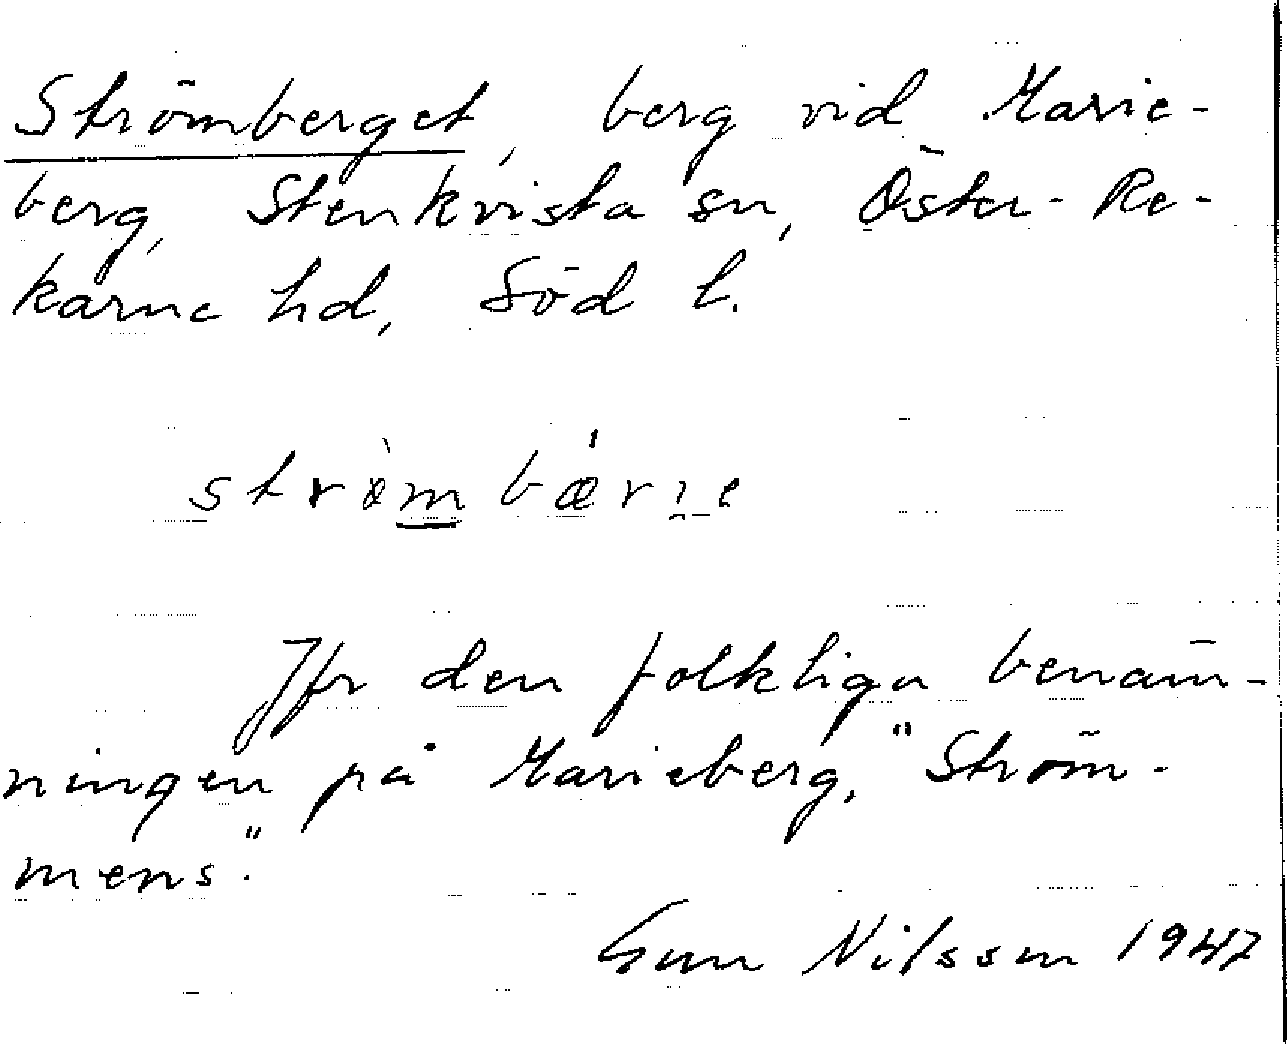 Strömberget, berg vid Marie-
berg, Stenkvista sn, Öster-Re-
karne hd, Söd l.
strø̀mbǽrje
Jfr den folkliga benäm-
ningen på Marieberg, "Ström-
mens".
Gun Nilsson 1947